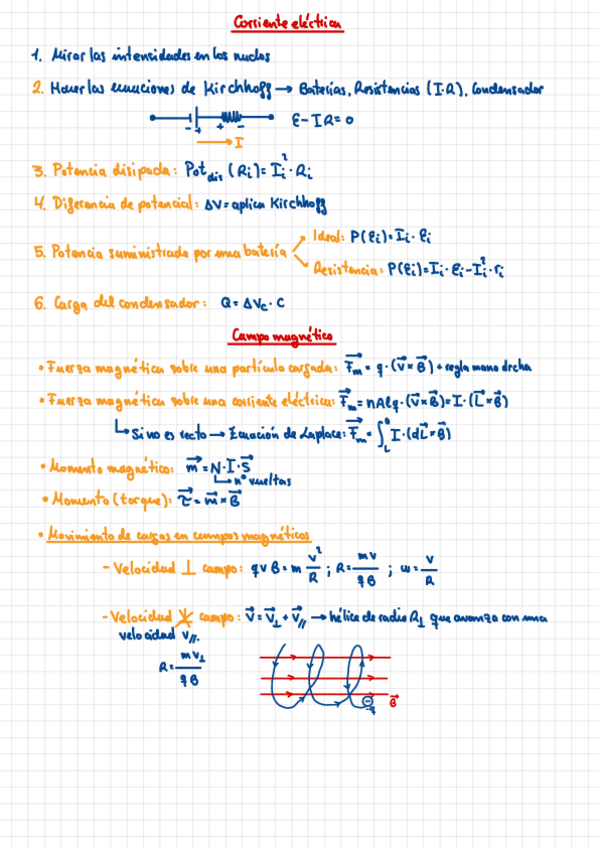 Corriente eléctrica
1. Mirar las intensidades en los nudos
2. Hacer las ecuaciones de Kirchhoff → Baterías, Resistencias (I·R), Condensador
- + + -
ε - I R = 0
→ I
3. Potencia disipada: Pot_dis (R_i) = I_i² · R_i
4. Diferencia de potencial: ΔV = aplica Kirchhoff
Ideal: P(ε_i) = I_i · ε_i
5. Potencia suministrada por una batería
Resistencia: P(ε_i) = I_i · ε_i - I_i² · r_i
6. Carga del condensador: Q = ΔV_c · C
Campo magnético
• Fuerza magnética sobre una partícula cargada: F⃗_m = q · (v⃗ × B⃗) + regla mano drcha
• Fuerza magnética sobre una corriente eléctrica: F⃗_m = nAlq · (v⃗ × B⃗) = I · (L⃗ × B⃗)
↳ Si no es recto → Ecuación de Laplace: F⃗_m = ∫ I · (dL⃗ × B⃗)
• Momento magnético: m⃗ = N · I · S⃗
↳ nº vueltas
• Momento (torque): τ⃗ = m⃗ × B⃗
• Movimiento de cargas en campos magnéticos
- Velocidad ⊥ campo: q v B = m v²/R ; R = mv/qB ; ω = v/R
- Velocidad ⊥̸ campo: v⃗ = v⃗_⊥ + v⃗_// → hélice de radio R_⊥ que avanza con una
velocidad v_//.
R = mv_⊥/qB
-q B⃗